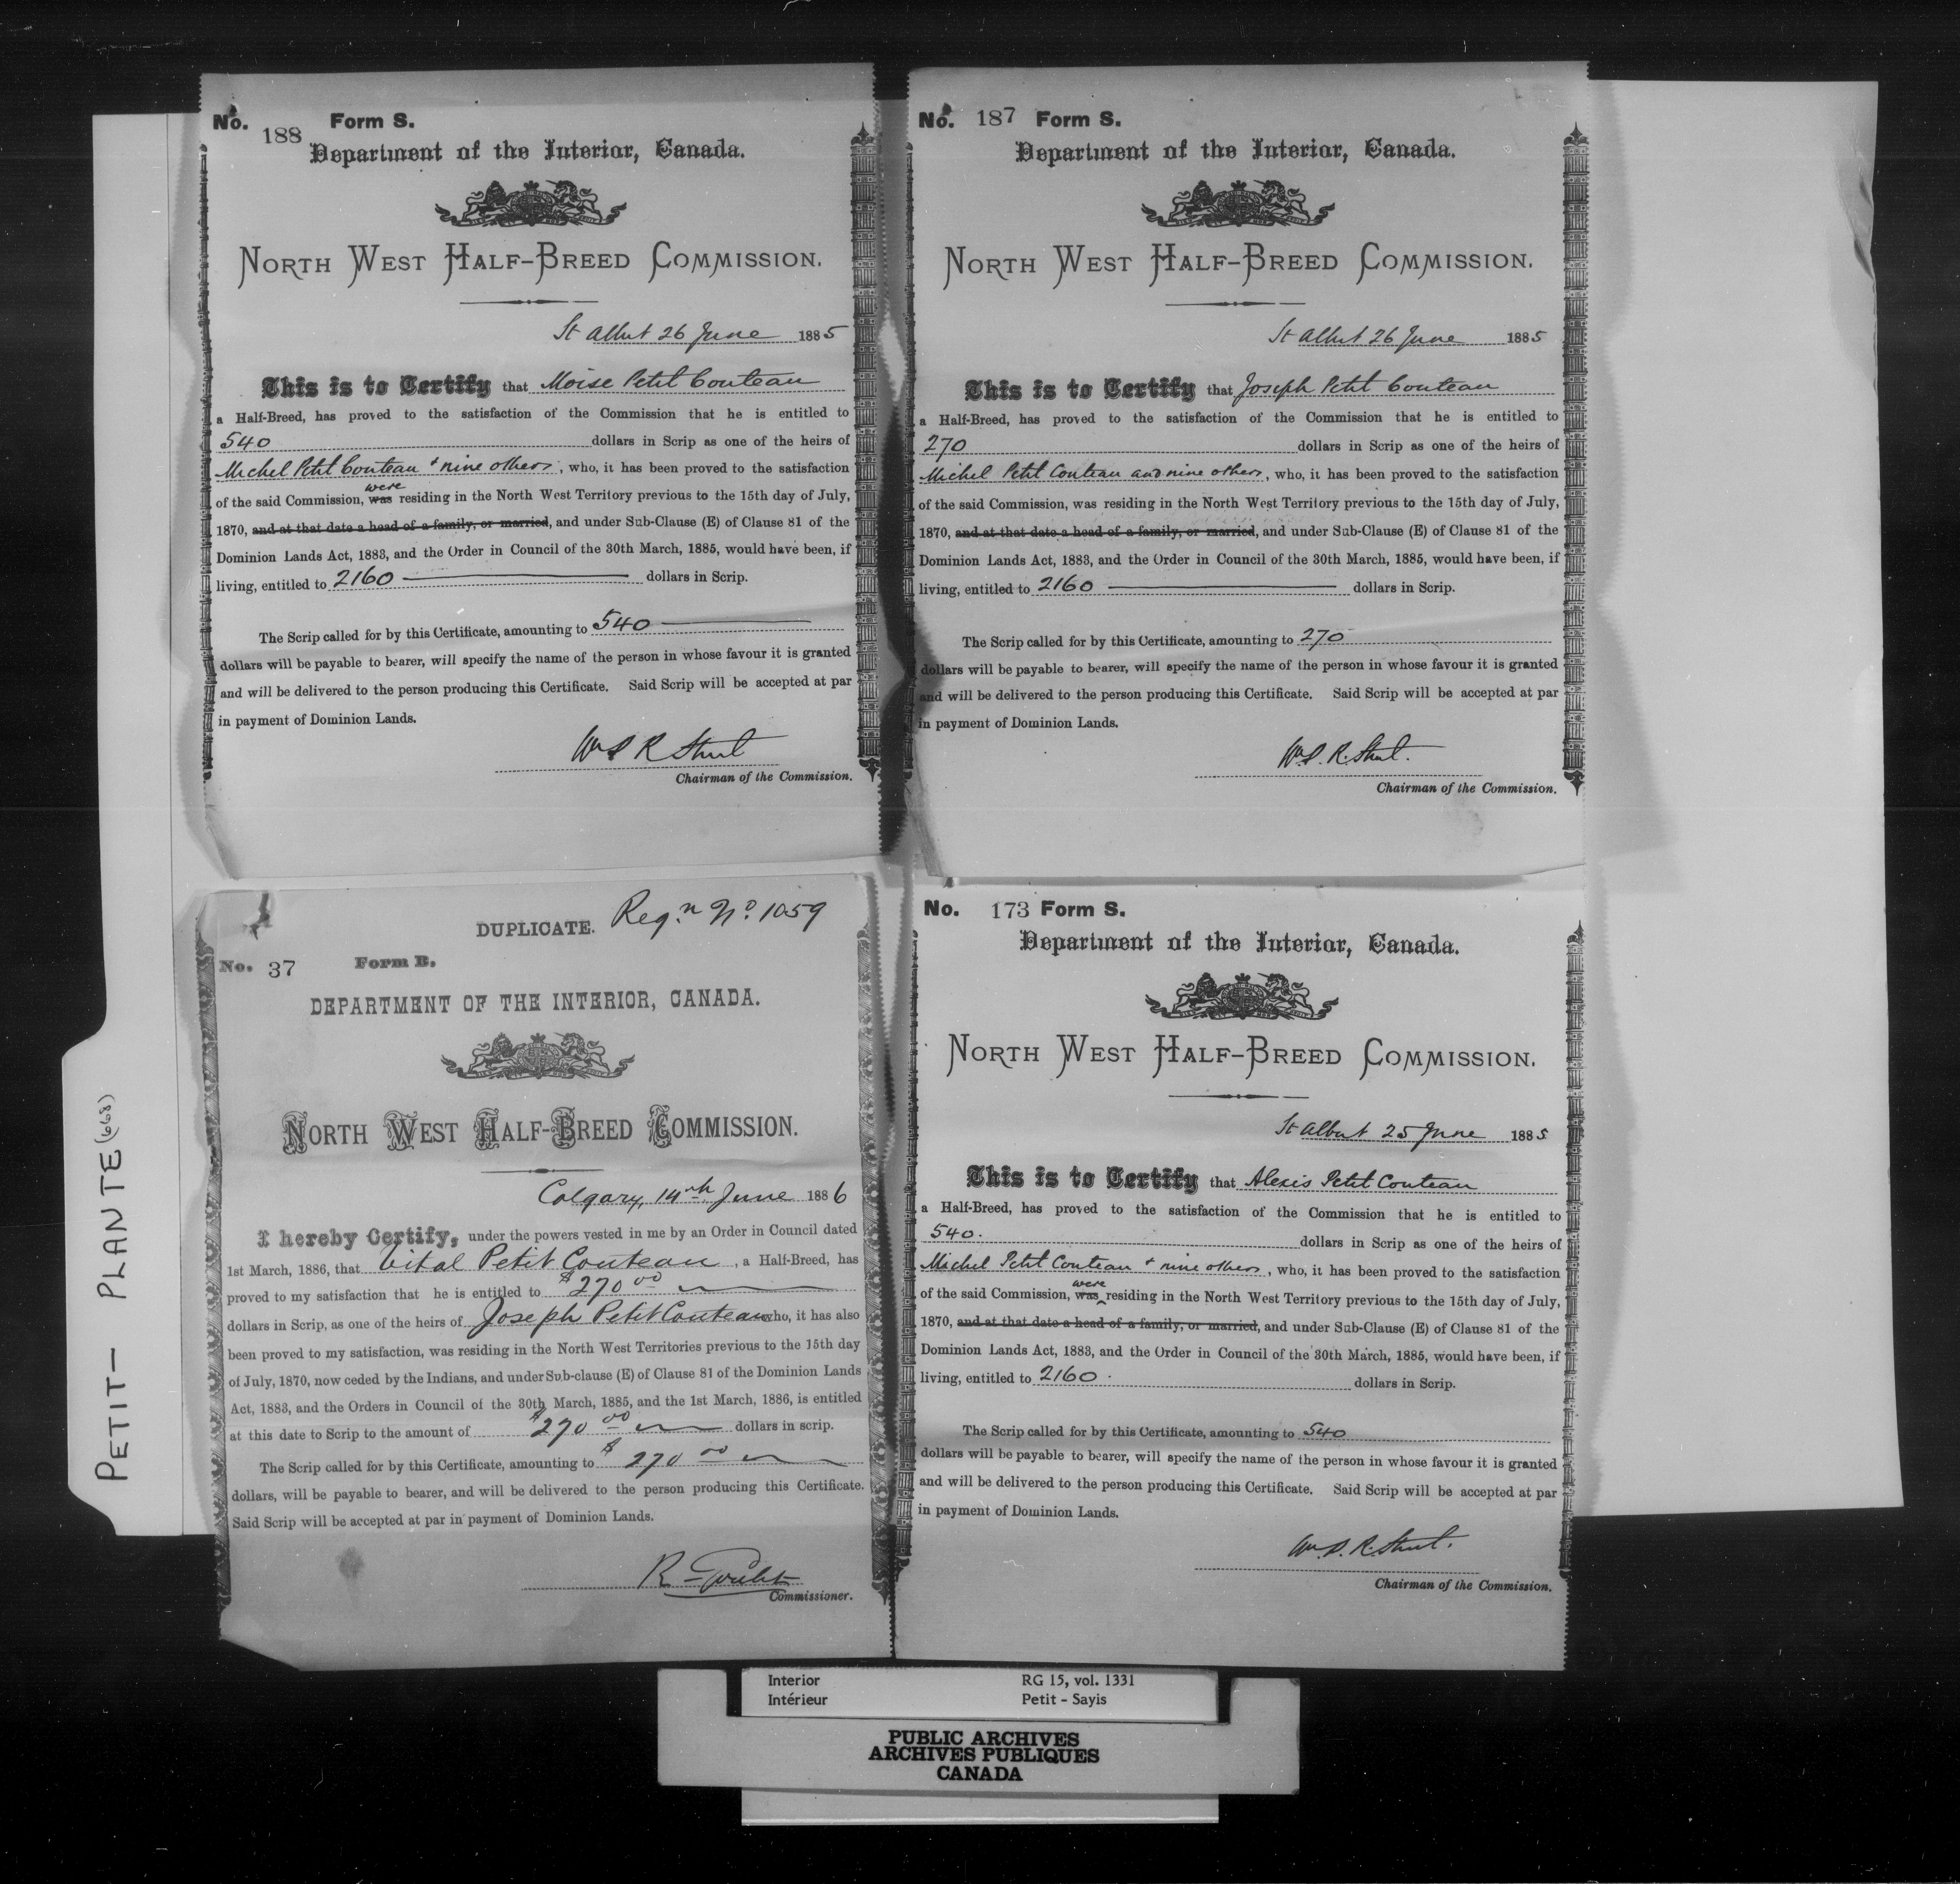 No. 188 Form S.
Department of the Interior, Canada.
NORTH WEST HALF-BREED COMMISSION.
St Albert 26 June 1885
This is to Certify that Moise Petit Couteau
a Half-Breed, has proved to the satisfaction of the Commission that he is entitled to
540 dollars in Scrip as one of the heirs of
Michel Petit Couteau + nine others, who, it has been proved to the satisfaction
were
of the said Commission, was residing in the North West Territory previous to the 15th day of July,
1870, and at that date a head of a family, or married, and under Sub-Clause (E) of Clause 81 of the
Dominion Lands Act, 1883, and the Order in Council of the 30th March, 1885, would have been, if
living, entitled to 2160 dollars in Scrip.
The Scrip called for by this Certificate, amounting to 540
dollars will be payable to bearer, will specify the name of the person in whose favour it is granted
and will be delivered to the person producing this Certificate. Said Scrip will be accepted at par
in payment of Dominion Lands.
Wm P. R. Street
Chairman of the Commission.
No. 187 Form S.
Department of the Interior, Canada.
NORTH WEST HALF-BREED COMMISSION.
St Albert 26 June 1885
This is to Certify that Joseph Petit Couteau
a Half-Breed, has proved to the satisfaction of the Commission that he is entitled to
270 dollars in Scrip as one of the heirs of
Michel Petit Couteau and nine others, who, it has been proved to the satisfaction
of the said Commission, was residing in the North West Territory previous to the 15th day of July,
1870, and at that date a head of a family, or married, and under Sub-Clause (E) of Clause 81 of the
Dominion Lands Act, 1883, and the Order in Council of the 30th March, 1885, would have been, if
living, entitled to 2160 dollars in Scrip.
The Scrip called for by this Certificate, amounting to 270
dollars will be payable to bearer, will specify the name of the person in whose favour it is granted
and will be delivered to the person producing this Certificate. Said Scrip will be accepted at par
in payment of Dominion Lands.
W. P. R. Street.
Chairman of the Commission.
DUPLICATE. Reg.n No. 1059
No. 37 Form B.
DEPARTMENT OF THE INTERIOR, CANADA.
NORTH WEST HALF-BREED COMMISSION.
Calgary, 14th June 1886
I hereby Certify, under the powers vested in me by an Order in Council dated
1st March, 1886, that Vital Petit Couteau, a Half-Breed, has
proved to my satisfaction that he is entitled to $270 00
dollars in Scrip, as one of the heirs of Joseph Petit Couteau who, it has also
been proved to my satisfaction, was residing in the North West Territories previous to the 15th day
of July, 1870, now ceded by the Indians, and under Sub-clause (E) of Clause 81 of the Dominion Lands
Act, 1883, and the Orders in Council of the 30th March, 1885, and the 1st March, 1886, is entitled
at this date to Scrip to the amount of $270 00 dollars in scrip.
The Scrip called for by this Certificate, amounting to $270 00
dollars, will be payable to bearer, and will be delivered to the person producing this Certificate.
Said Scrip will be accepted at par in payment of Dominion Lands.
R Goulet
Commissioner.
No. 173 Form S.
Department of the Interior, Canada.
NORTH WEST HALF-BREED COMMISSION.
St Albert 25 June 1885
This is to Certify that Alexis Petit Couteau
a Half-Breed, has proved to the satisfaction of the Commission that he is entitled to
540. dollars in Scrip as one of the heirs of
Michel Petit Couteau + nine others, who, it has been proved to the satisfaction
were
of the said Commission, was residing in the North West Territory previous to the 15th day of July,
1870, and at that date a head of a family, or married, and under Sub-Clause (E) of Clause 81 of the
Dominion Lands Act, 1883, and the Order in Council of the 30th March, 1885, would have been, if
living, entitled to 2160. dollars in Scrip.
The Scrip called for by this Certificate, amounting to 540
dollars will be payable to bearer, will specify the name of the person in whose favour it is granted
and will be delivered to the person producing this Certificate. Said Scrip will be accepted at par
in payment of Dominion Lands.
Wm. P. R. Street.
Chairman of the Commission.
PETIT - PLANTE (668)
Interior RG 15, vol. 1331
Intérieur Petit - Sayis
PUBLIC ARCHIVES
ARCHIVES PUBLIQUES
CANADA